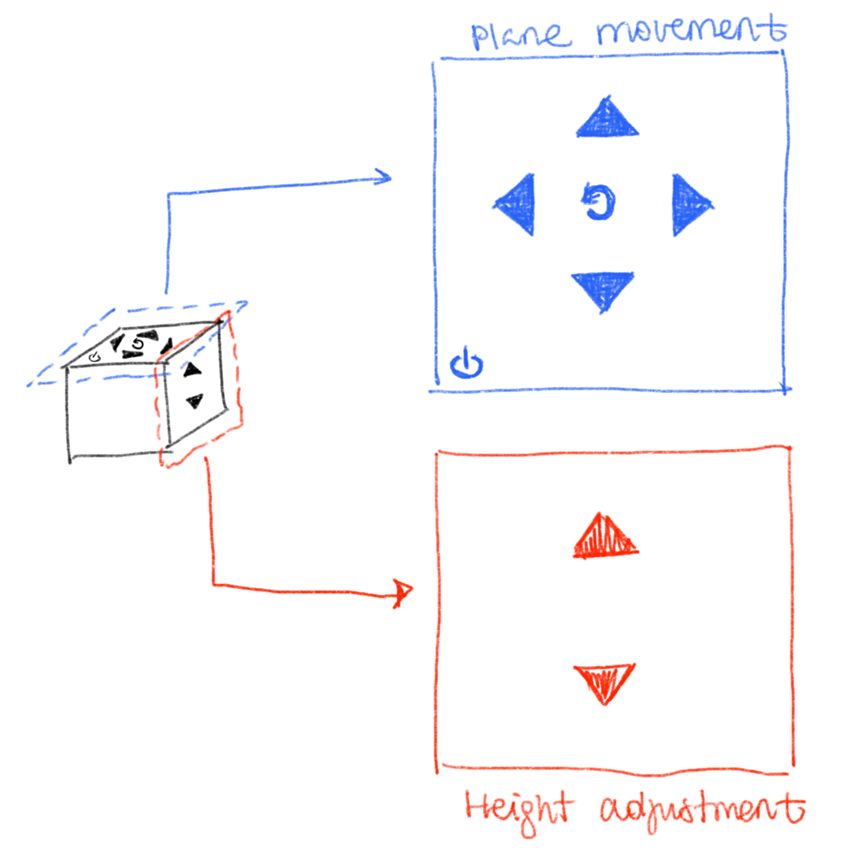 Plane movement
Height adjustment